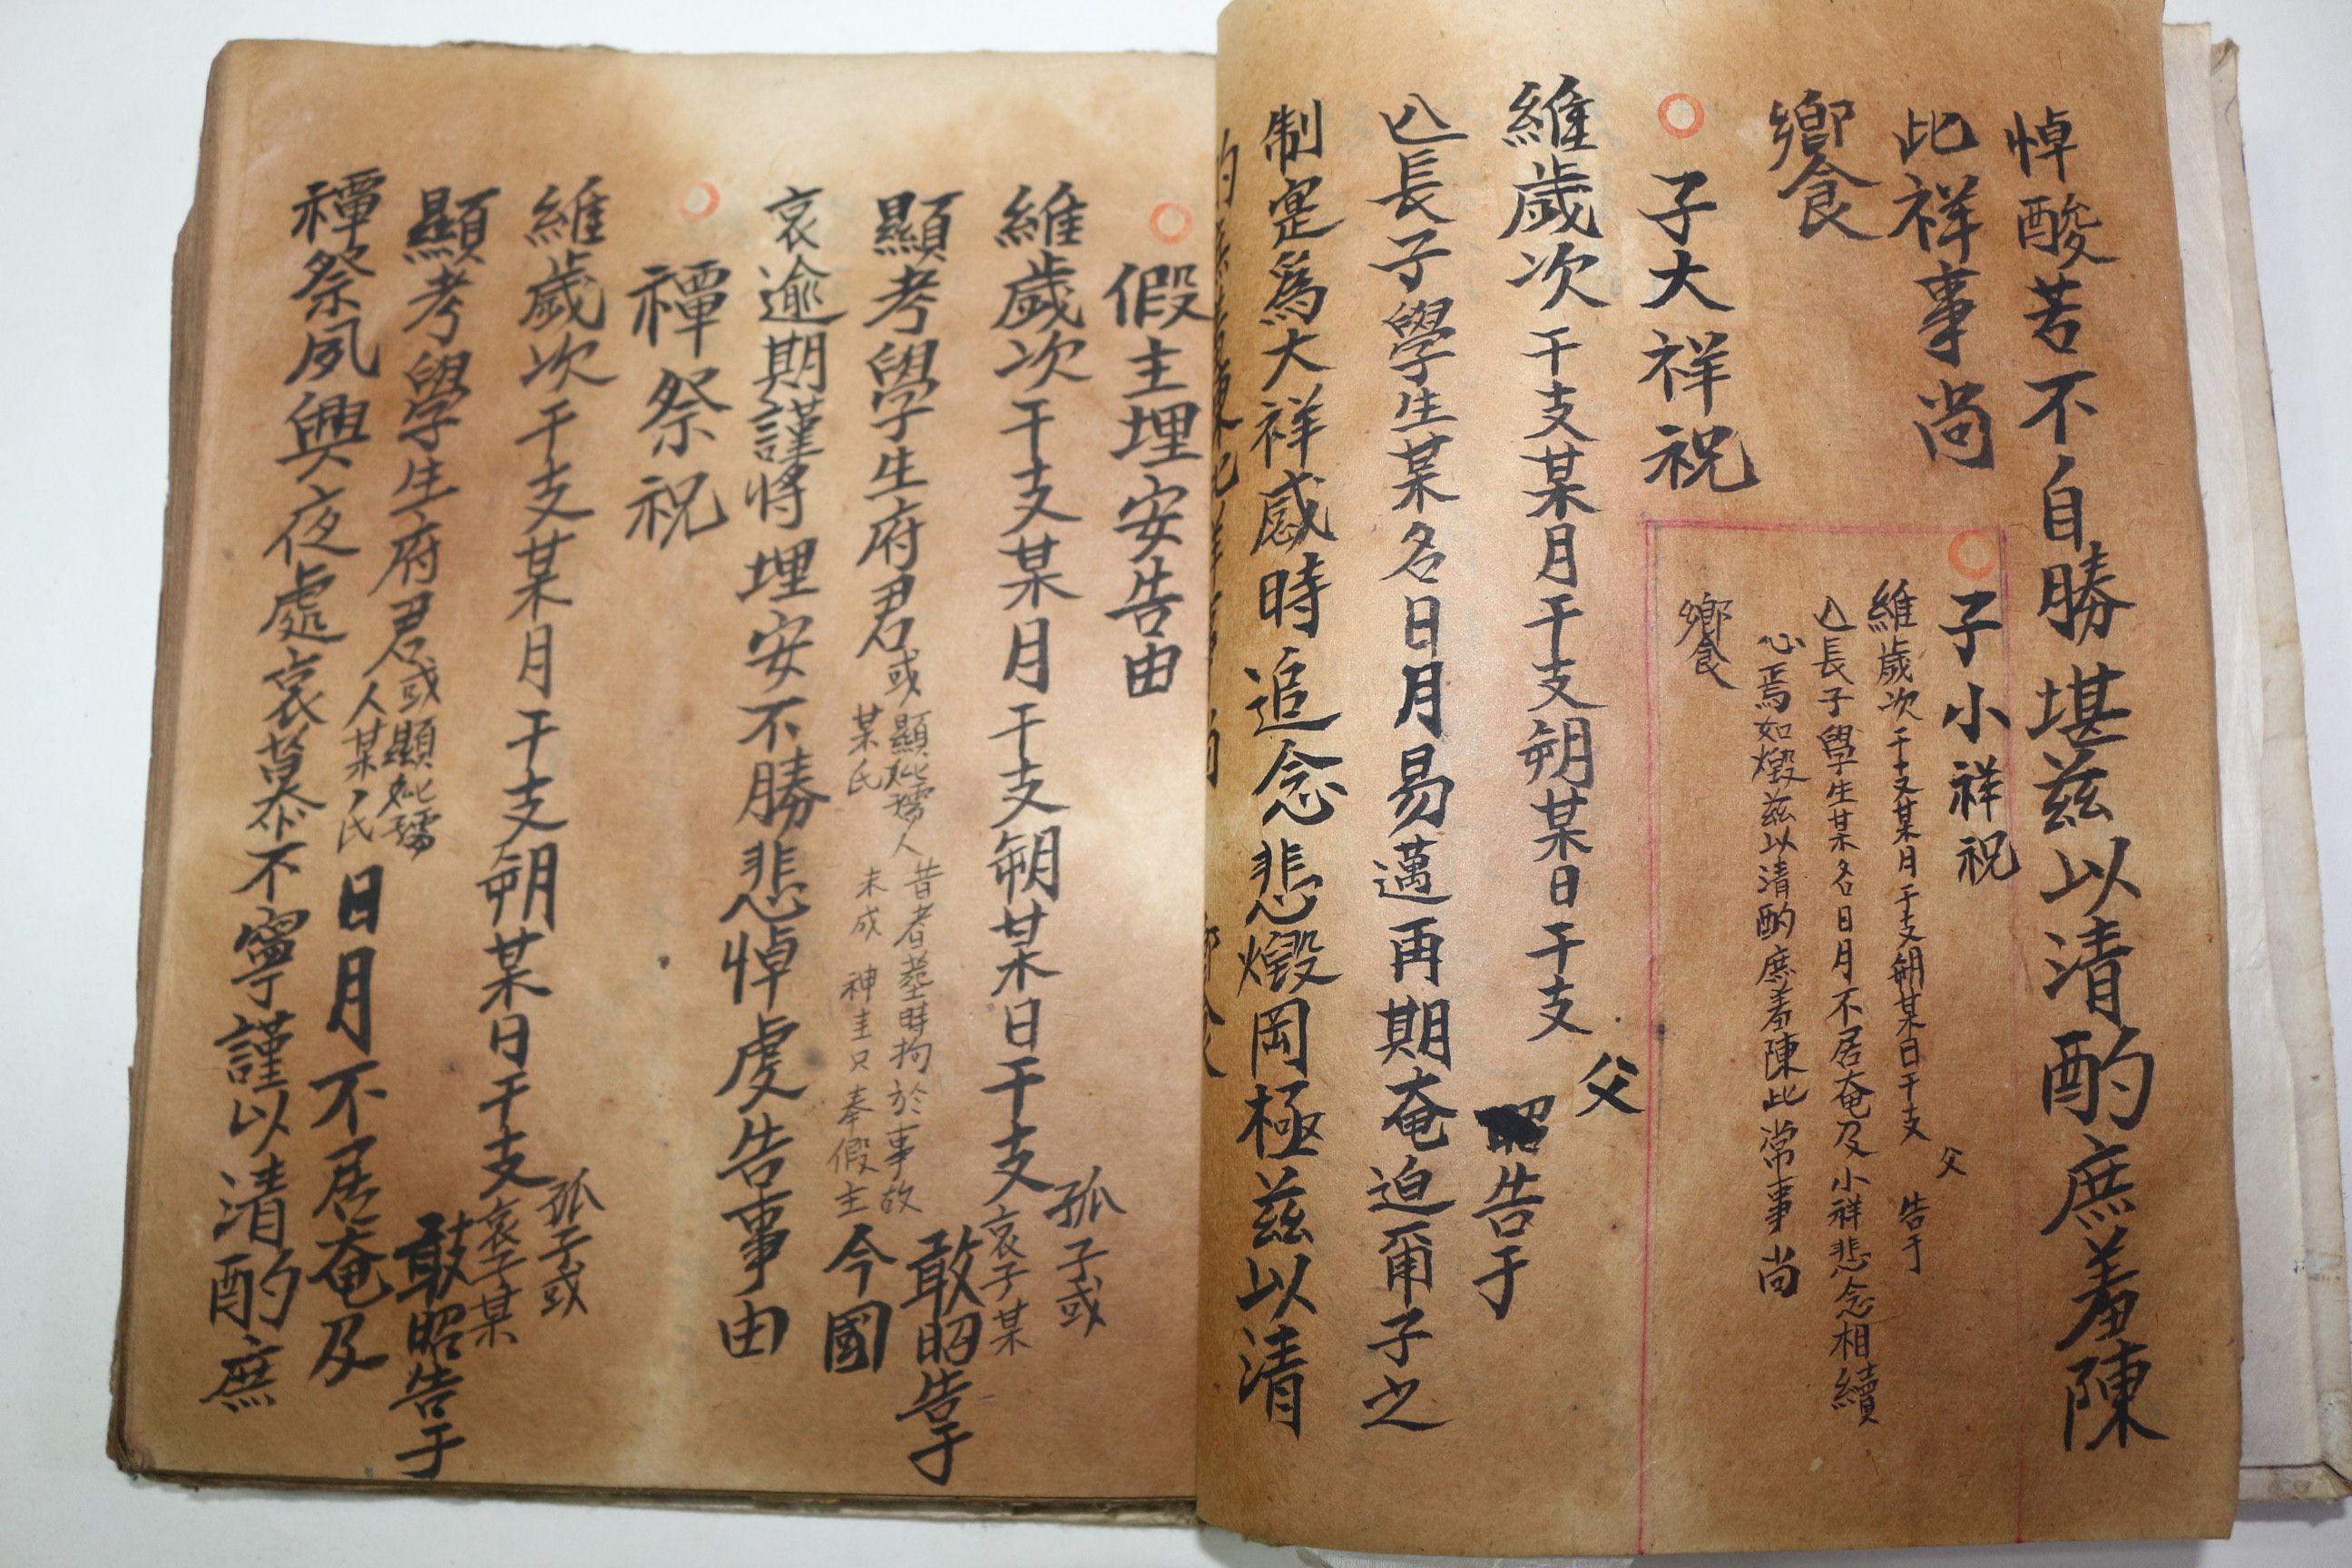 悼酸苦不自勝堪茲以清酌庶羞陳
此祥事尚
饗
子小祥祝
維歲次干支某月干支朔某日干支
父
告于
亾長子學生某名日月不居奄及小祥悲念相續
心焉如燬茲以清酌庶羞陳此常事尚
饗
子大祥祝
維歲次干支某月干支朔某日干支
父
昭告于
亾長子學生某名日月易邁再期奄迫甭子之
制寔爲大祥感時追念悲燬岡極茲以清
假主埋安告由
維歲次干支某月干支朔某日干支
孤子或
哀子某
敢昭告于
顯考學生府君
或顯妣孺人
某氏
昔者葬時拘於事故
未成神主只奉假主
今國
哀逾期謹將埋安不勝悲悼虔告事由
禫祭祝
維歲次干支某月干支朔某日干支
孤子或
哀子某
敢昭告于
顯考學生府君
或顯妣孺
人某氏
日月不居奄及
禫祭夙興夜處哀慕不寧謹以清酌庶